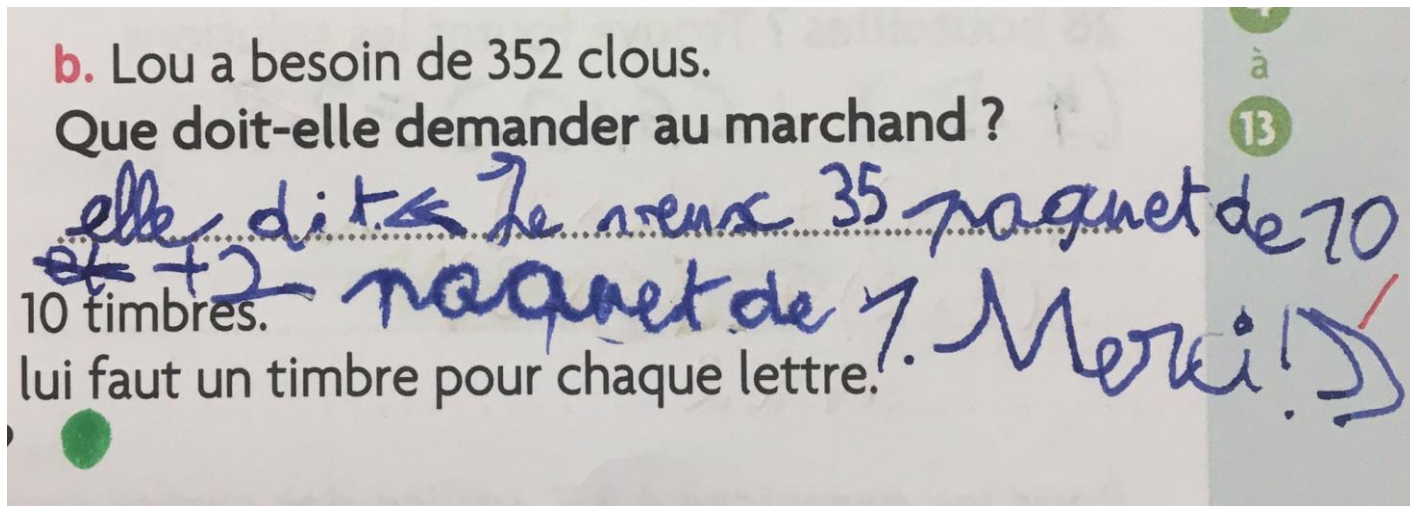 b. Lou a besoin de 352 clous.
à
Que doit-elle demander au marchand ?
13
elle dit « Je veux 35 paquet de 10
et + 2 paquet de 1. Merci ! »
10 timbres.
lui faut un timbre pour chaque lettre.